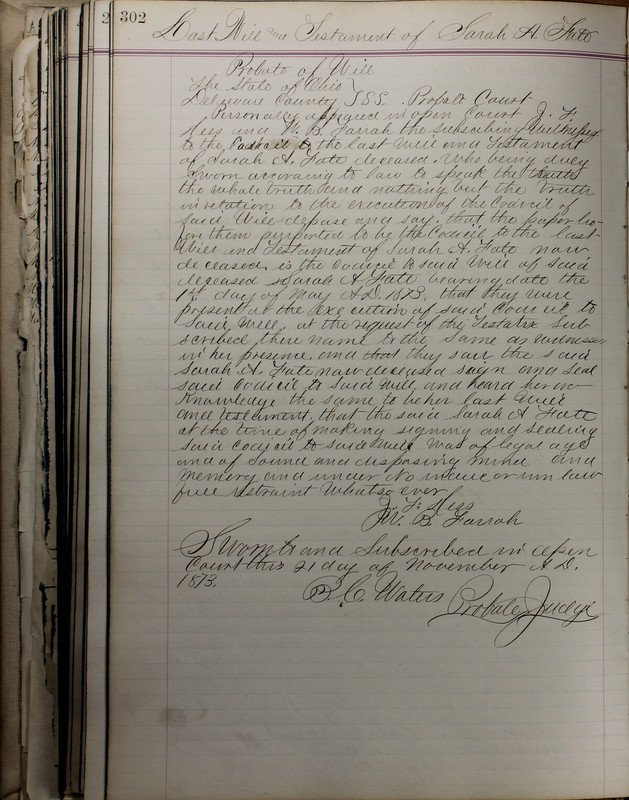 2 302
Last Will and Testament of Sarah A. Fate
Probate of Will
The State of Ohio
Delaware County, SS. Probate Court
Personally appeared in open Court J. F.
Mess and W. B. Farrah the subscribing Witnesses
to the Codicil to the last Will and Testament
of Sarah A. Fate deceased. Who being duly
Sworn according to law to speak the truth
the whole truth and nothing but the truth
in relation to the execution of the Codicil of
said Will depose and say, that the paper be-
fore them purported to be the Codicil to the last
Will and Testament of Sarah A. Fate now
deceased, is the Codicil to said Will of said
deceased Sarah A Fate bearing date the
1st day of May A.D. 1873, that they were
present at the execution of said Codicil to
said Will, at the request of the Testatrix Sub-
scribed there name to the same as witnesses
in her presence, and that they saw the said
Sarah A. Fate now deceased sign and seal
said Codicil to said Will, and heard her ac-
knowledge the same to be her last Will
and testament, that the said Sarah A Fate
at the time of making signing and sealing
said Codicil to said Will was of legal age
and of sound and disposing mind and
memory and under no undue or unlaw
full restraint Whatso ever
J. F. Mess
W. B. Farrah
Sworn to and Subscribed in open
Court this 21 day of November A.D.
1873.
B. C. Waters Probate Judge